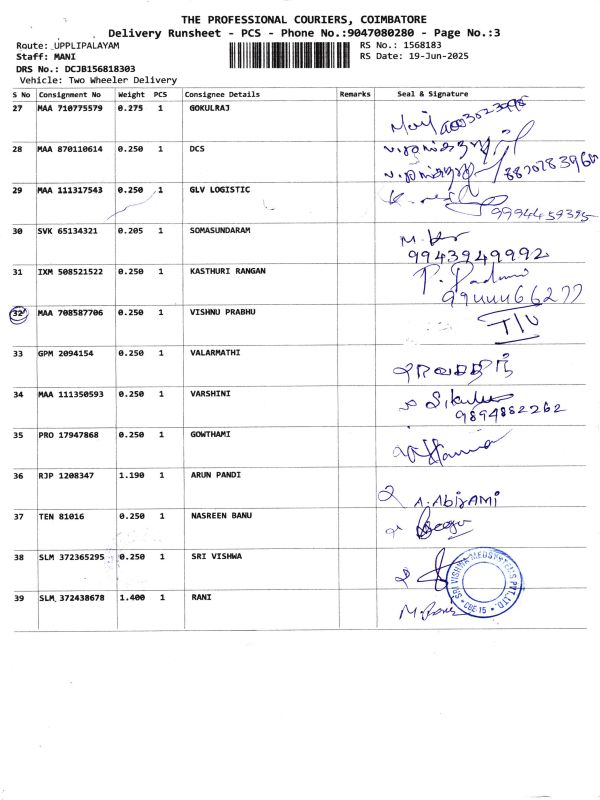 THE PROFESSIONAL COURIERS, COIMBATORE
Delivery Runsheet - PCS - Phone No.:9047080280 - Page No.:3
Route: UPPLIPALAYAM
RS No.: 1568183
Staff: MANI
RS Date: 19-Jun-2025
DRS No.: DCJB156818303
Vehicle: Two Wheeler Delivery
S No Consignment No Weight PCS Consignee Details Remarks Seal & Signature
27 MAA 710775579 0.275 1 GOKULRAJ
28 MAA 870110614 0.250 1 DCS
29 MAA 111317543 0.250 1 GLV LOGISTIC
9994459395
30 SVK 65134321 0.205 1 SOMASUNDARAM
9943949992
31 IXM 508521522 0.250 1 KASTHURI RANGAN
P.
32 MAA 708587706 0.250 1 VISHNU PRABHU
33 GPM 2094154 0.250 1 VALARMATHI
34 MAA 111350593 0.250 1 VARSHINI
9894882262
35 PRO 17947868 0.250 1 GOWTHAMI
36 RJP 1208347 1.190 1 ARUN PANDI
A. ABIRAMI
37 TEN 81016 0.250 1 NASREEN BANU
38 SLM 372365295 0.250 1 SRI VISHWA
SRI VISHWA MEDSYSTEMS PVT. LTD.
CBE 15
39 SLM 372438678 1.400 1 RANI